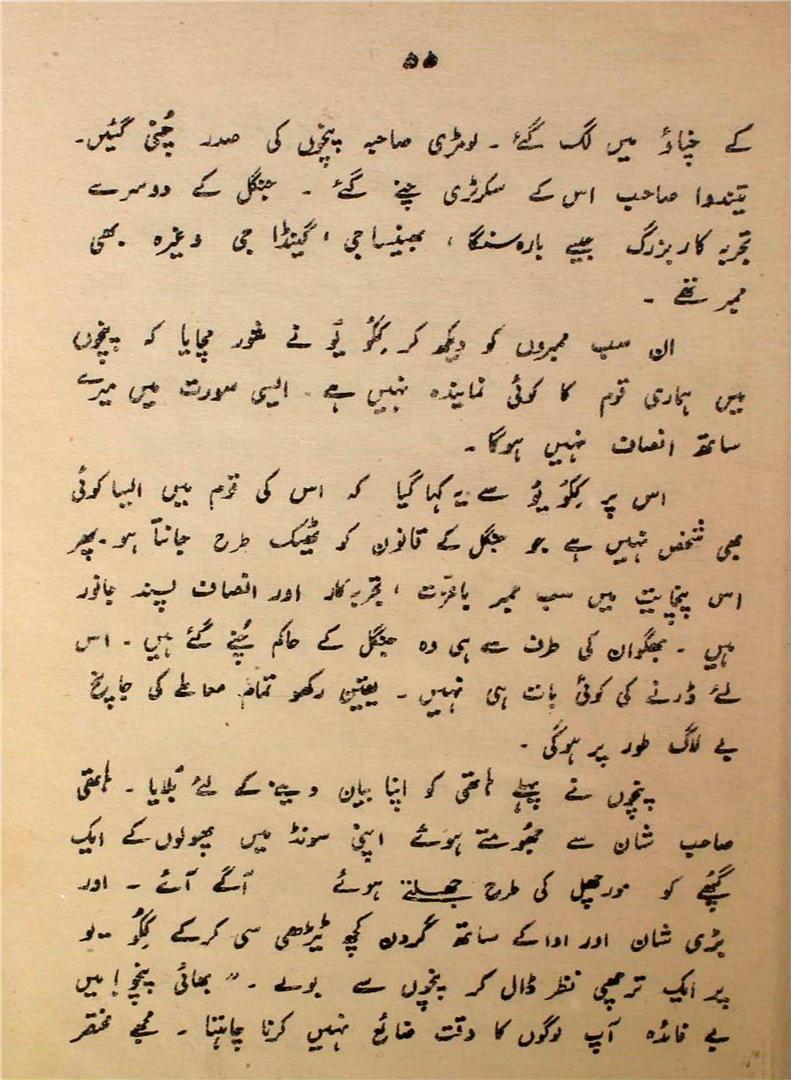 ۵۵
کے چناؤ میں لگ گئے ۔ لومڑی صاحبہ پنچوں کی صدر چُنی گئیں۔
تیندوا صاحب اس کے سکرٹری چنے گئے ۔ جنگل کے دوسرے
تجربہ کار بزرگ جیسے بارہ سنگا ، بھینسا جی ، گینڈا جی وغیرہ بھی
ممبر تھے ۔
ان سب ممبروں کو دیکھ کر کِکُو یُو نے شور مچایا کہ پنچوں
میں ہماری قوم کا کوئی نمایندہ نہیں ہے ۔ ایسی صورت میں میرے
ساتھ انصاف نہیں ہوگا ۔
اس پر کِکُو یُو سے یہ کہا گیا کہ اس کی قوم میں ایسا کوئی
بھی شخص نہیں ہے جو جنگل کے قانون کو ٹھیک طرح جانتا ہو ۔ پھر
اس پنچایت میں سب ممبر باعزت ، تجربہ کار اور انصاف پسند جانور
ہیں ۔ بھگوان کی طرف سے ہی وہ جنگل کے حاکم چُنے گئے ہیں ۔ اس
لئے ڈرنے کی کوئی بات ہی نہیں ۔ یقین رکھو تمام معاملے کی جانچ
بے لاگ طور پر ہوگی ۔
پنچوں نے پہلے ہاتھی کو اپنا بیان دینے کے لئے بُلایا ۔ ہاتھی
صاحب شان سے جھومتے ہوئے اپنی سونڈ میں پھولوں کے ایک
گچھے کو مورچھل کی طرح جھلتے ہوئے آگے آئے ۔ اور
بڑی شان اور ادا کے ساتھ گردن کچھ ٹیڑھی سی کرکے کِکُو ۔یو
پر ایک ترچھی نظر ڈال کر پنچوں سے بولے ۔ " بھائی پنچو ! میں
بے فائدہ آپ لوگوں کا وقت ضائع نہیں کرنا چاہتا ۔ مجھے مختصر